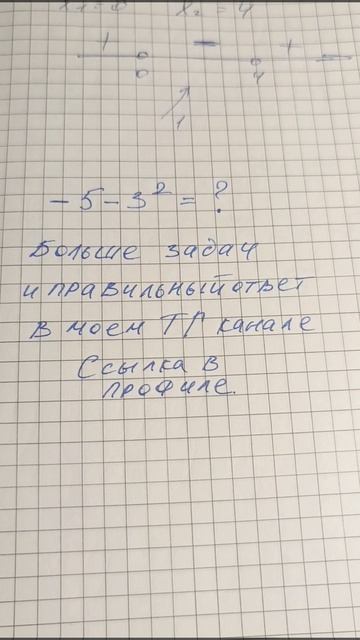 x₂ = 4
+ − +
0 4
1
− 5 − 3² = ?
Больше задач
и правильный ответ
в моем ТГ канале
Ссылка в
профиле.